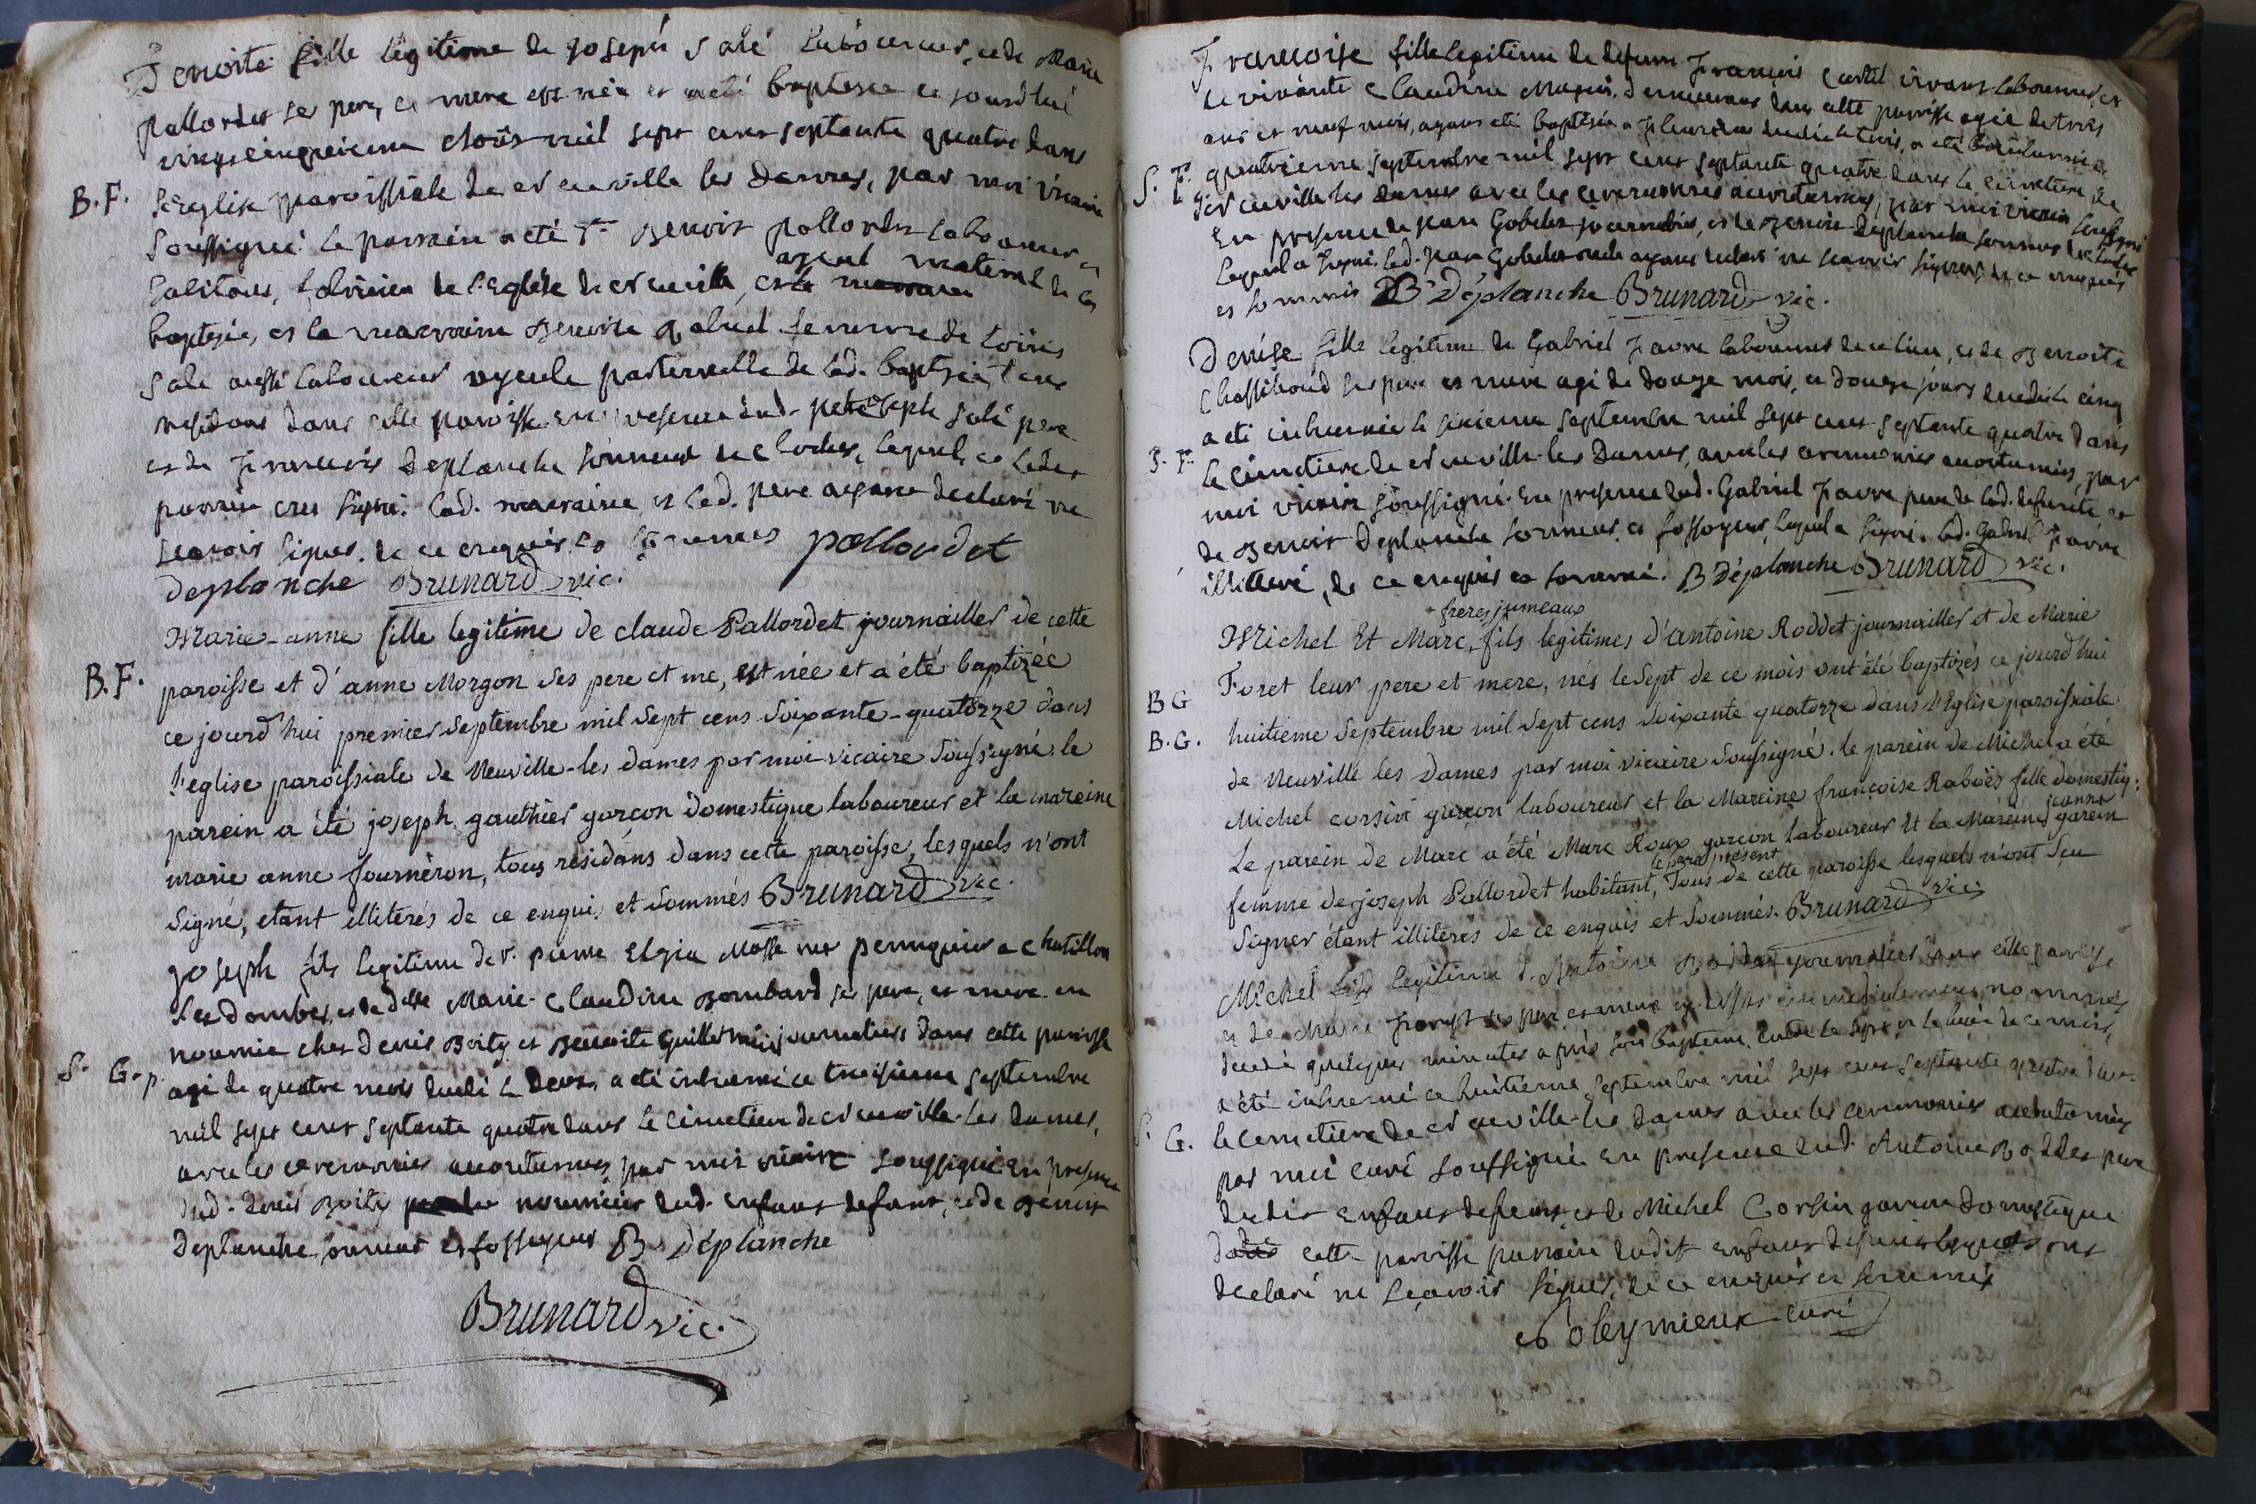 Benoite fille legitime de joseph Salé Laboureur, et de Marie
pallordet ses pere, et mere est née et a eté baptisée ce jourdhui
vingt cinquieme Aoûs mil sept cens septante quatre dans
B.F. L'eglise paroissiale de Neuville les Dames, par moi vicaire
soussigné: le parrain a eté Sr. Benoit pallordet Laboureur et
habitans, Luminier de L'Eglise de Neuville, et le
ayeul maternel de la
baptisée, et la marraine Benoite femme de Loüis
Salé aussi Laboureur ayeule paternelle de lad. baptisée, tous
residans dans cette paroisse en presence dud. joseph Salé pere
et de François Deplanche sonneur de cloches, lequel, et ledit
parrain ont signé. Lad. marraine et led. pere ayans declaré ne
sçavoir signer. de ce enquis et sommés pallordet
deplanche Brunard vic.
Marie-anne fille legitime de claude Pallordet journailler de cette
B.F. paroisse et d'anne Morgon ses pere et me, est née et a été baptizée
ce jourd'hui premier septembre mil sept cens soixante-quatorze dans
l'eglise paroissiale de Neuville-les dames par moi vicaire soussigné. le
parein a été joseph gauthier garçon domestique laboureur et la mareine
marie anne fourneron, tous residans dans cette paroisse, lesquels n'ont
signé, etant illiterés de ce enquis et sommés Brunard vic.
joseph fils legitime de Sr. pierre Mosse ner perruquier a chatillon
Les Dombes, et de delle Marie-Claudine Bombard ses pere, et mere en
nourrice chez Denis Boity et Benoite Guillermin journaliers dans cette paroisse
S. G. p. agé de quatre mois decedé le Deux, a eté inhumé ce troisieme septembre
mil sept cens septante quatre dans le cimetiere de Neuville-les Dames,
avec les ceremonies accoutumées, par moi vicaire soussigné En presence
dud. Denis Boity nourricier dud. enfant defunt, et de Benoit
Deplanche, sonneur et fossoyeur B. Déplanche
Brunard vic.
Françoise fille legitime de defunt François vivant Laboureur, et
de vivante Claudine demeurans dans cette paroisse agée de trois
ans et neuf mois, ayans eté baptisée a a eté inhumée le
S. F. quatrieme septembre mil sept cens septante quatre dans le cimetiere de
Neuville les Dames avec les ceremonies accoutumées, par moi vicaire soussigné
En presence de jean Gobelet journalier, et de Benoit Deplanche sonneur de cloches
Lequel a signé. Led. jean Gobelet ayans declaré ne sçavoir signer, de ce enquis
et sommés B. Déplanche Brunard vic.
Denise fille legitime de Gabriel Favre laboureur de ce lieu, et de Benoite
Chassiboud ses pere et mere agé de douze mois, et douze jours decedée le cinq
a eté inhumée le sixieme septembre mil sept cens septante quatre dans
S. F. Le cimetiere de Neuville-les Dames, avec les ceremonies accoutumées, par
moi vicaire soussigné. En presence dud. Gabriel Favre pere de lad. defunte et
de Benoit Deplanche sonneur, et fossoyeur, lequel a signé. Led. Gabriel Favre
illitteré, de ce enquis et sommé. B Déplanche Brunard vic.
freres jumeaux
Michel Et Marc, fils legitimes d'antoine Roddet journailler et de Marie
BG Foret leur pere et mere, nés le sept de ce mois ont été baptizés ce jourd'hui
B.G. huitieme septembre mil sept cens soixante quatorze dans l'Eglise paroissiale
de Neuville les Dames par moi vicaire soussigné. le parein de Michel a été
Michel corsin garçon laboureur et la Mareine françoise Raboës fille domestiq:
Le parein de Marc a été Marc Roux garçon laboureur Et la Mareine jeanne garein
femme de joseph Pallordet habitant, le pere present Tous de cette paroisse lesquels n'ont sçu
signer étant illiterés de ce enquis et sommés. Brunard vic.
Michel fils legitime d'Antoine Roddet journalier dans cette paroisse
et de Marie Foret ses pere et mere cy dessus immediatement nommés
decedé quelques minutes après son baptême. entre le sept et le huit de ce mois,
a été inhumé ce huitieme septembre mil sept cens septante quatre dans
S. G. le cemetiere de Neuville-les Dames avec les ceremonies accoutumées
par moi curé soussigné en presence dud. Antoine Roddet pere
dudit enfant defunt, et de Michel Corsin garçon domestique
dans cette paroisse parrain dudit enfant defunt lesquels ont
declaré ne sçavoir signer, de ce enquis et sommés
Noleymieux curé